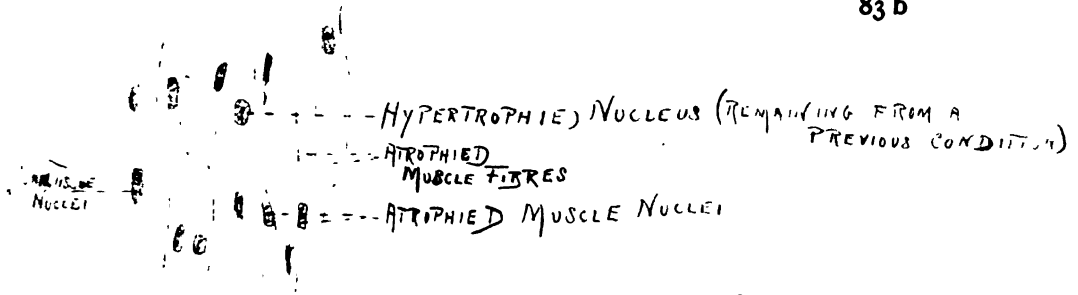 83 b
HYPERTROPHIED NUCLEUS (REMAINING FROM A
PREVIOUS CONDITION)
ATROPHIED
MUSCLE FIBRES
NUCLEI
ATROPHIED MUSCLE NUCLEI